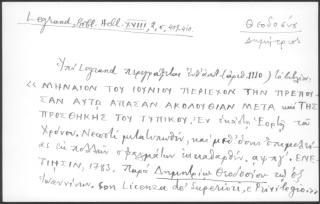 Legrand, Bibl. Hell. XVIII, 2, σ. 409-410.
Θεοδοσίου
Δημήτριος
Ὑπὸ Legrand περιγράφεται ὑπ' ἀριθ. (ἀριθμ. 1110)
« ΜΗΝΑΙΟΝ ΤΟΥ ΙΟΥΝΙΟΥ ΠΕΡΙΕΧΟΝ ΤΗΝ ΠΡΕΠΟΥ-
ΣΑΝ ΑΥΤΩ ΑΠΑΣΑΝ ΑΚΟΛΟΥΘΙΑΝ ΜΕΤΑ καὶ ΤΗΣ
ΠΡΟΣΘΗΚΗΣ ΤΟΥ ΤΥΠΙΚΟΥ. Ἐν τοῦ
Χρόνου. Νεωστὶ μετατυπωθὲν, καὶ μεθ' ὅσης ἐπιμελεί-
ας ἐκ πολλῶν σφαλμάτων ἐκκαθαρθέν. αψπγ'. ΕΝΕ-
ΤΙΗΣΙΝ, 1783. Παρὰ Δημητρίῳ Θεοδοσίου τῷ ἐξ
Ἰωαννίνων. Con Licenza de' Superiori, e Privilegio. »